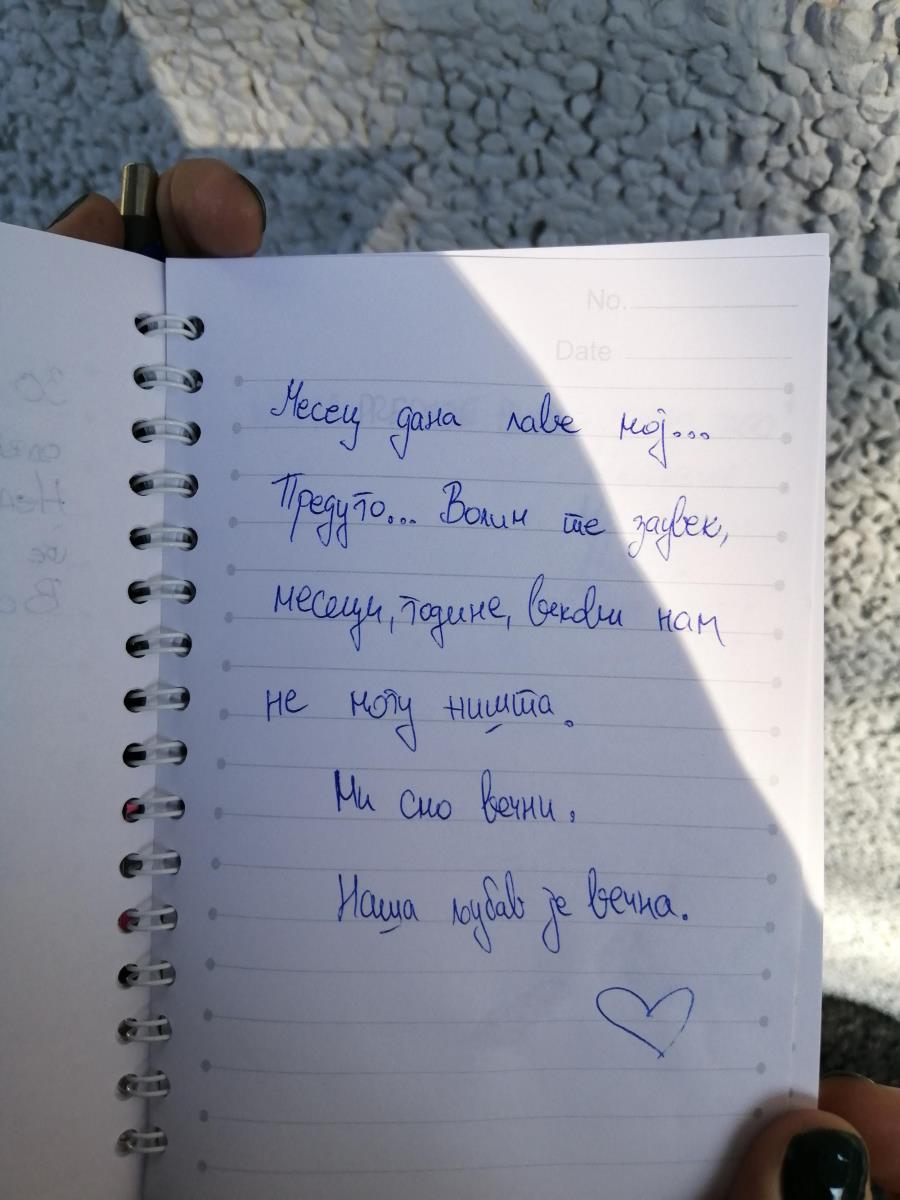 No.
Date
Месец дана лаве мој...
Предуго... Волим те заувек,
месеци, године, векови нам
не могу ништа.
Ми смо вечни.
Наша љубав је вечна.